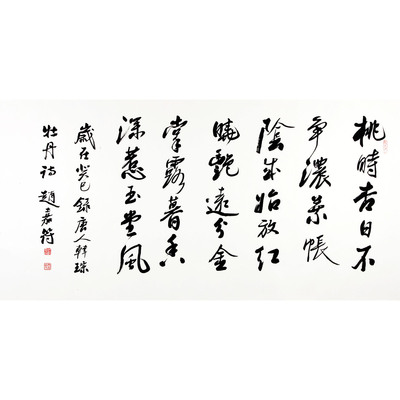 桃時杏日不
爭濃葉帳
陰成始放紅
曉艷遠分金
掌露暮香
深惹玉堂風
歲在癸巳錄唐人韓琮
牡丹詩 趙嘉符